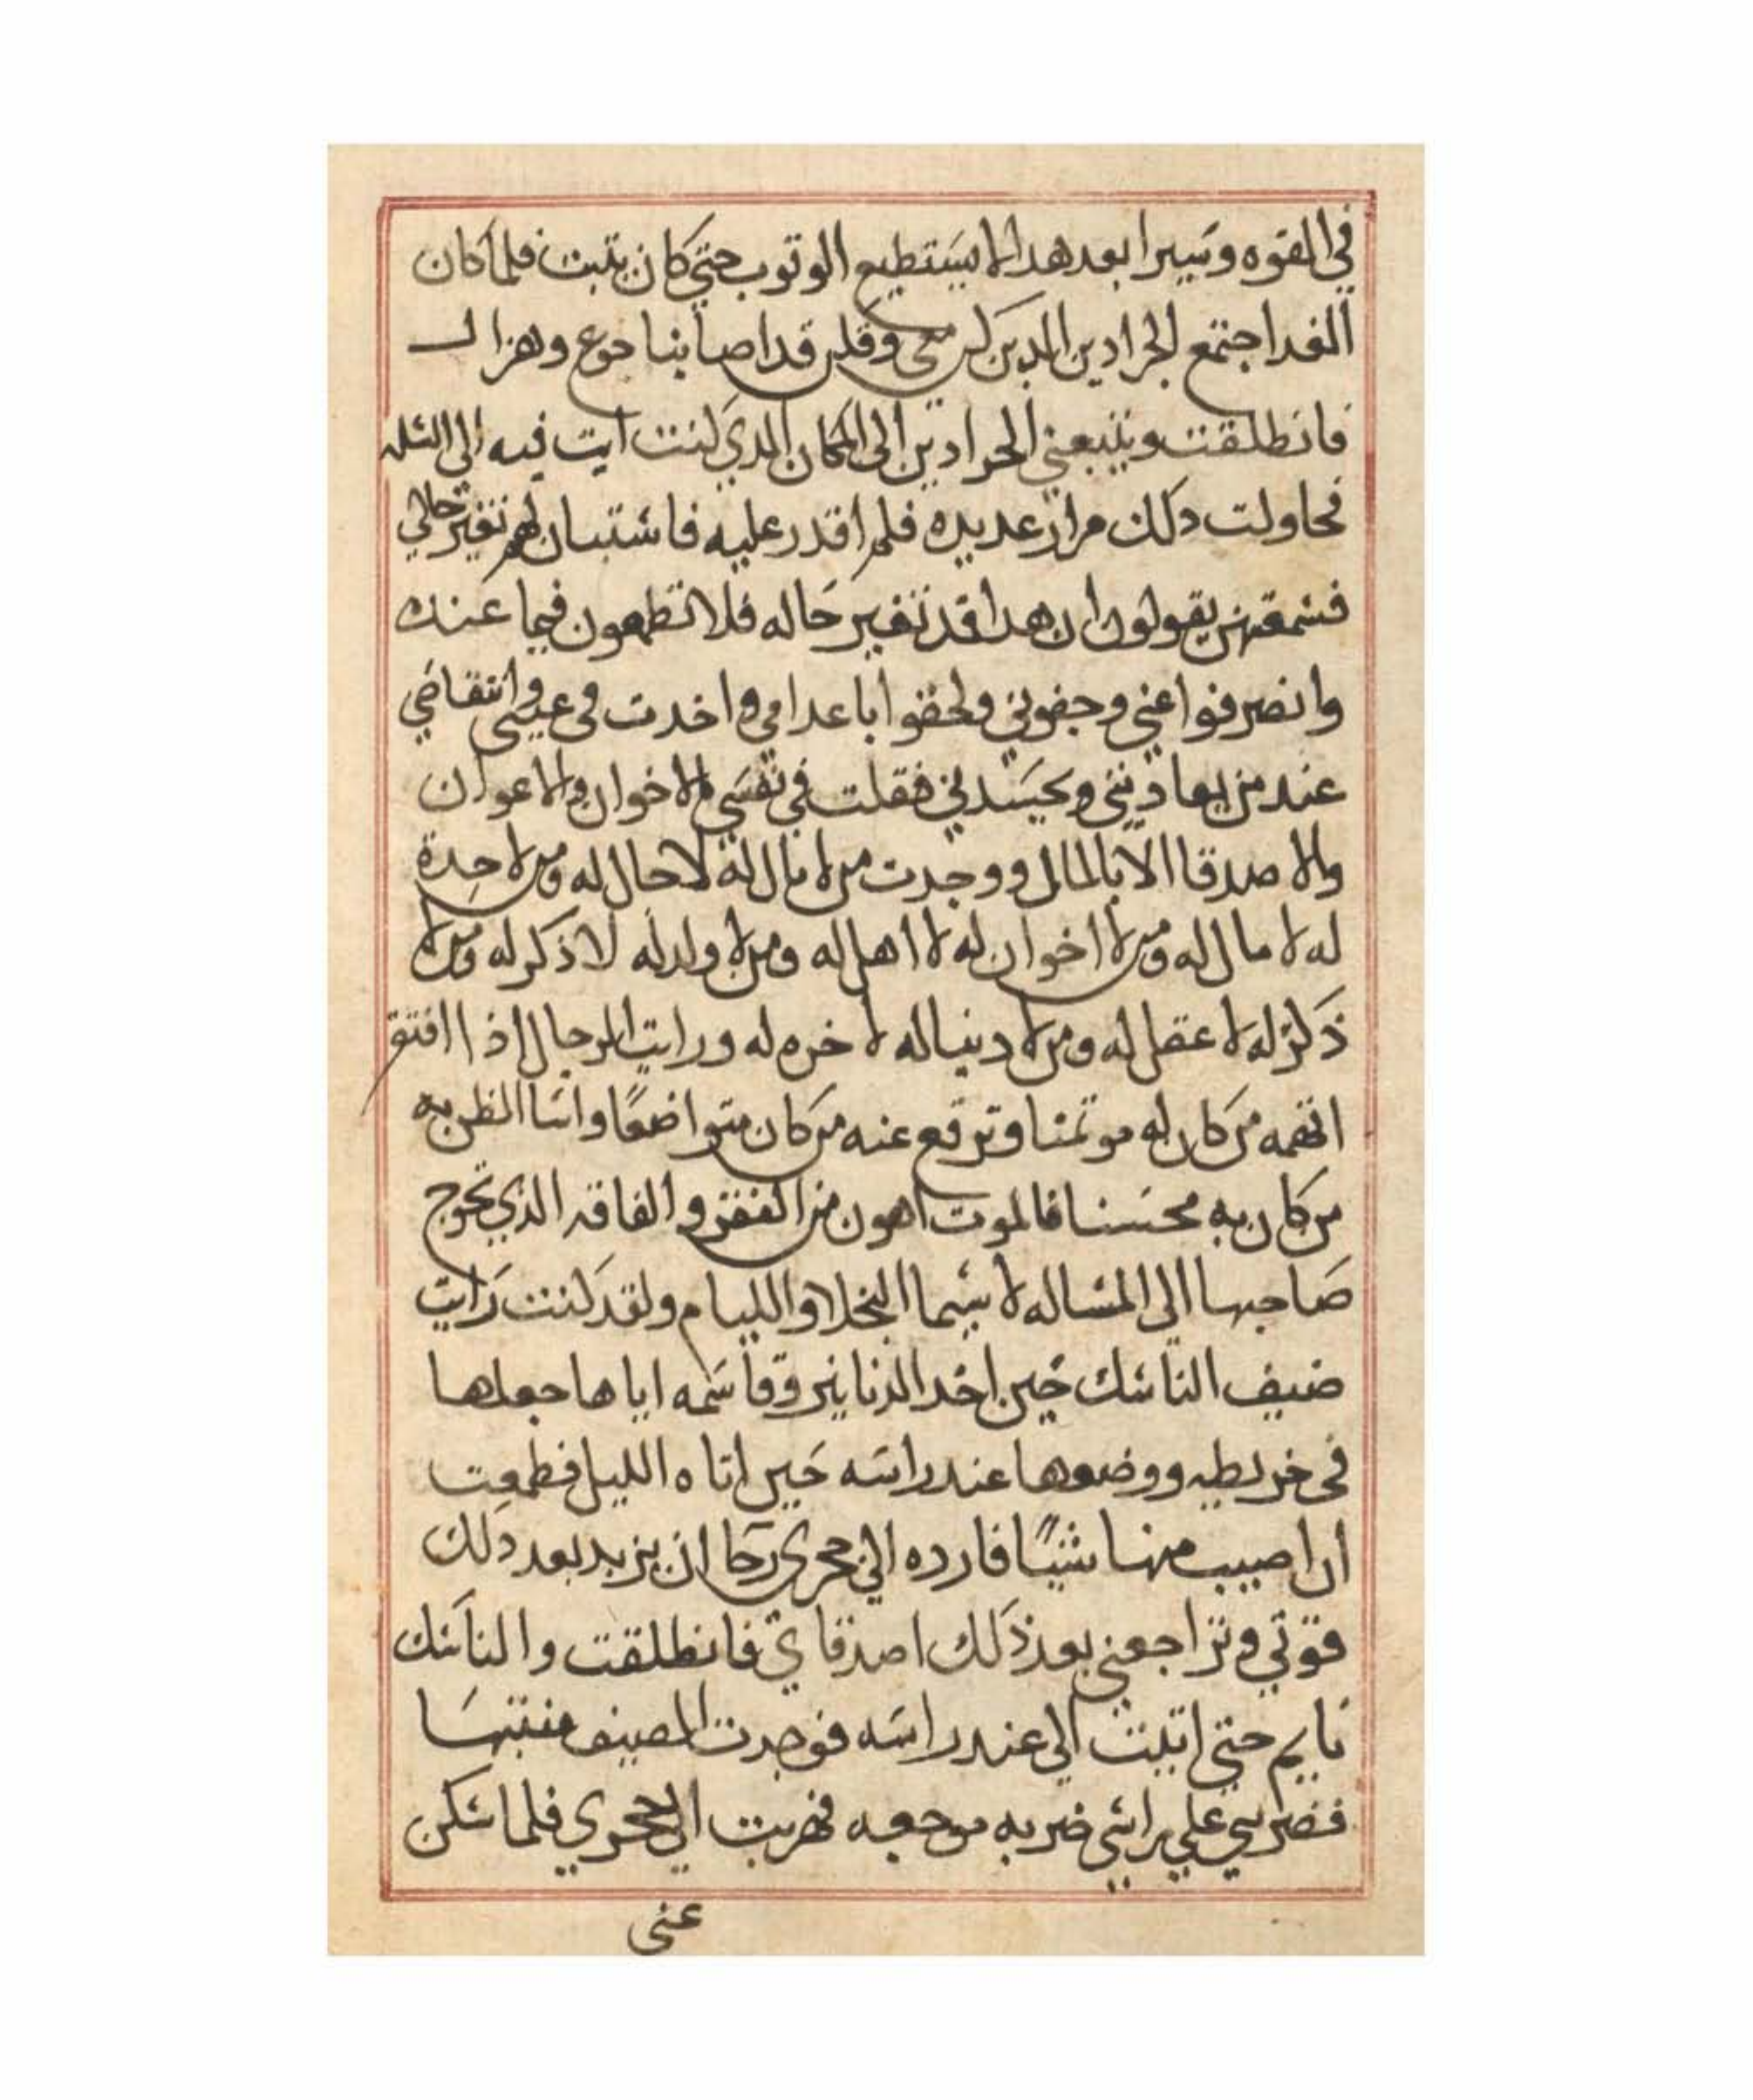 في القوه وتبيرا بعد هدا لا يستطيع الوتوب حتي كان يتبت فلما كان
الغد اجتمع الجرادين الدين كن معي وقلن قد اصابنا جوع وهزال
فانطلقت ويتبعني الجرادين الي المكان الدي كنت اتيت فيه الي السله
فحاولت دلك مرار عديده فلم اقدر عليه فاستبان لهم تغير حالي
فسمعتهن يقولون ان هدا قد تغير حاله فلا تطمعون فيما عنده
وانصرفوا عني وجفوني ولحقوا باعدامي واخدت في عيبي وانتقاضي
عند من يعاديني ويحسدني فقلت في نفسي ما لاخوان ولا اعوان
ولا صدقا الا بالمال ووجدت من لا مال له لا حال له ومن لا حدة
له لا مال له ومن لا اخوان له لا اهل له ومن لا ولد له لا ذكر له ومن لا
ذكر له لا عقل له ومن لا دنيا له لا اخره له ورايت الرجال اذا افتقر
اتهمه من كان له موتمنا وترفع عنه من كان متواضعًا واسا الظن به
من كان به محسنا فالموت اهون من الفقر والفاقه الذي تحوج
صاحبها الي المساله لا سيما البخلا والليام ولقد كنت رايت
ضيف الناسك حين اخد الدنانير وقاسمه اياها جعلها
في خريطه ووضعها عند راسه حين اتاه الليل فطمعت
ان اصيب منها شيًا فارده الي جحري رجا ان يزيد بعد دلك
قوتي وتراجعني بعد ذلك اصدقاي فانطلقت والناسك
نايم حتي اتيت الي عند راسه فوجدت الضيف منتبها
فضربني علي راسي ضربه موجعه فهربت الي جحري فلما سكن
عني